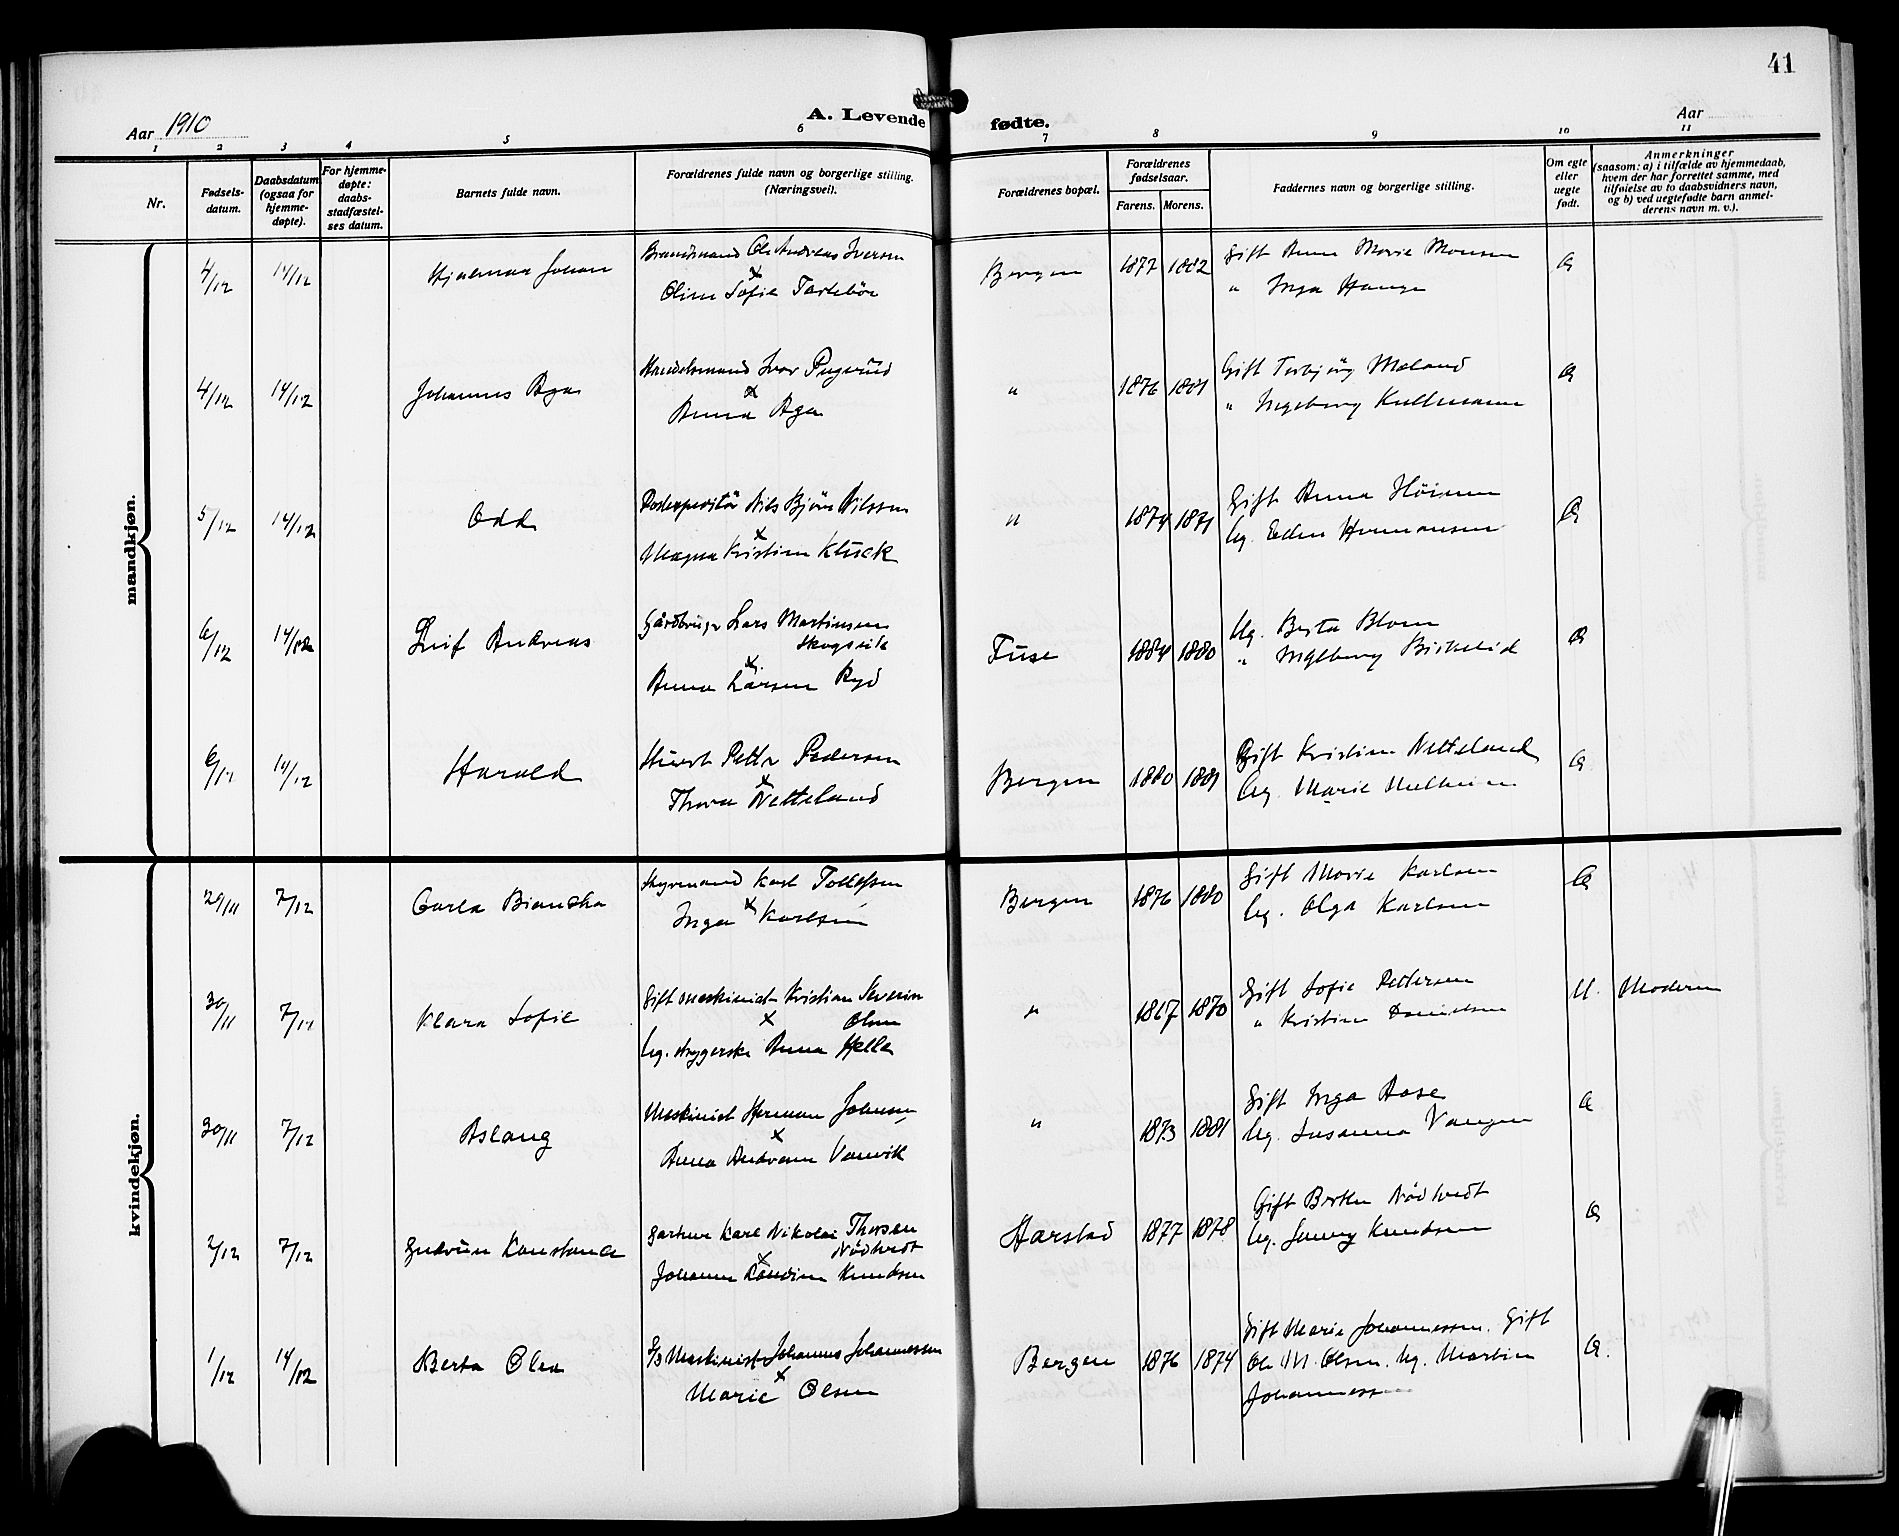 41
Aar 1910
A. Levende fødte.
Aar
1 2 3 4 5 6 7 8 9 10 11
Nr.
Fødsels-
datum.
Daabsdatum
(ogsaa for
hjemme-
døpte).
For hjemme-
døpte:
daabs-
stadfæstel-
ses datum.
Barnets fulde navn.
Forældrenes fulde navn og borgerlige stilling.
(Næringsvei).
Forældrenes bopæl.
Forældrenes
fødselsaar.
Farens. Morens.
Faddernes navn og borgerlige stilling.
Om egte
eller
uegte
født.
Anmerkninger
(saasom: a) i tilfælde av hjemmedaab,
hvem der har forrettet samme, med
tilføielse av to daabsvidners navn,
og b) ved uegtefødte barn anmel-
derens navn m. v.).
mandkjøn.
4/12 14/12 Hjalmar Johan
Brandmand Ole Andreas Iversen
x
Oline Sofie
Bergen 1877 1882
Gift Anna Marie Monsen
" Inga Hauge
4/12 14/12 Johannes Aga
Handelsmand Ivar
x
Anna Aga
" 1876 1881
Gift Torbjörg Mæland
" Ingeborg Kullmann
5/12 14/12 Odd
Nils Bjørn Nilssen
x
Magna Kristine Kluck
" 1874 1871
Gift Anna
Ug. Hermansen
6/12 14/12 Leif Andreas
Gårdbruger Lars Martinsen
x
Anna Larsen
Fuse 1884 1880
Ug. Berta Blom
" Ingeborg Birkelid
6/12 14/12 Harald
Petter Pedersen
x
Thora Netteland
Bergen 1880 1881
Gift Kristine Netteland
Ug. Marie
kvindekjøn.
29/11 7/12 Carla Bianka
Styrmand Karl Tollefsen
x
Inga Karlsen
Bergen 1876 1880
Gift Marie Karlsen
Ug. Olga Karlsen
30/11 7/12 Klara Sofie
Gift maskinist Kristian Severin
x Olsen
Ug. strygerske Anna Helle
" 1867 1870
Gift Sofie Pettersen
" Kristine Danielsen
U. Moderen
30/11 7/12 Aslaug
Maskinist Herman Johnsen
x
Anna Vanvik
" 1873 1881
Gift Inga Aase
Ug. Susanna Vangen
2/12 7/12 Gudrun Konstance
Gartner Karl Nikolai Thorsen
Nödtvedt
x
Johanne Knudsen
Harstad 1877 1878
Gift Berthe Nödtvedt
Ug. Jenny Knudsen
1/12 14/12 Berta Olea
Maskinist Johannes Johannessen
x
Marie Olsen
Bergen 1876 1874
Gift Marie Johannessen. Gift
Ole M. Olsen. Ug. Martin
Johannessen